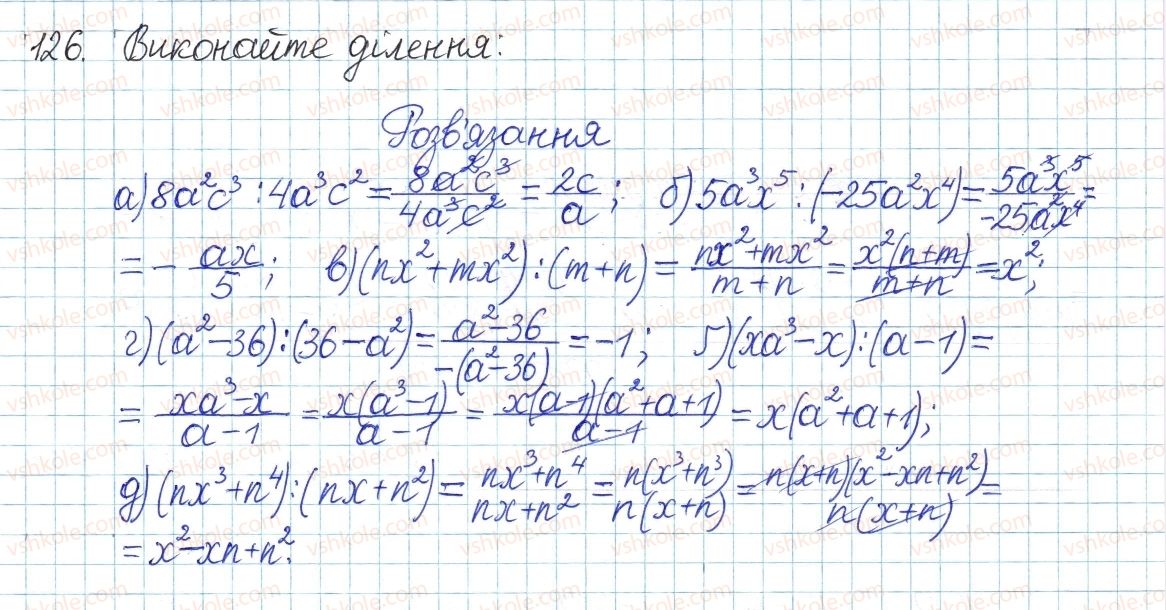 126. Виконайте ділення:
Розв'язання
а) 8a²c³ : 4a³c² = 8a²c³/4a³c² = 2c/a; б) 5a³x⁵ : (-25a²x⁴) = 5a³x⁵/-25a²x⁴ =
= - ax/5; в) (nx² + mx²) : (m + n) = nx² + mx²/m + n = x²(n + m)/m + n = x²;
г) (a² - 36) : (36 - a²) = a² - 36/-(a² - 36) = -1; ґ) (xa³ - x) : (a - 1) =
= xa³ - x/a - 1 = x(a³ - 1)/a - 1 = x(a - 1)(a² + a + 1)/a - 1 = x(a² + a + 1);
д) (nx³ + n⁴) : (nx + n²) = nx³ + n⁴/nx + n² = n(x³ + n³)/n(x + n) = n(x + n)(x² - xn + n²)/n(x + n) =
= x² - xn + n².